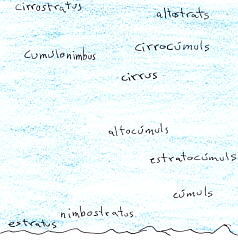 cirrostratus
altostrats
cirrocúmuls
cumulonimbus
cirrus
altocúmuls
estratocúmuls
cúmuls
nimbostratus
estratus